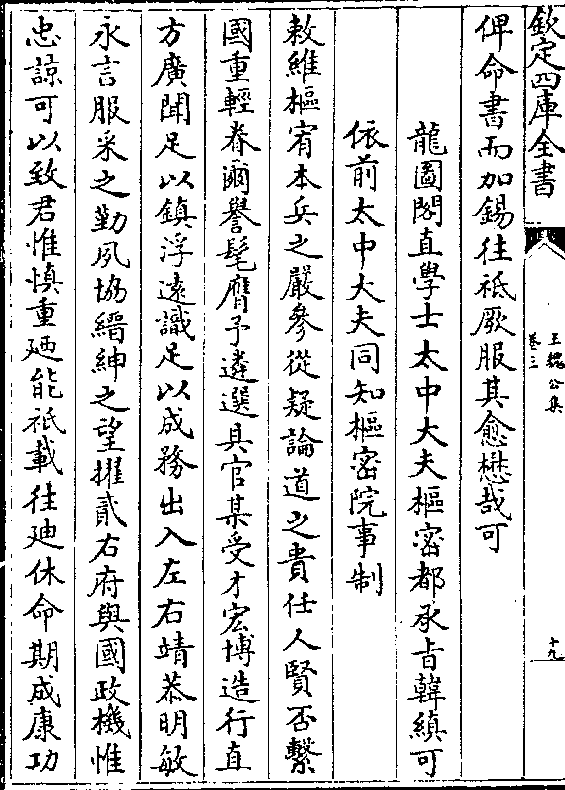 欽定四庫全書
王魏公集
卷三
十九
俾命書而加錫往祗厥服其愈懋哉可
龍圖閣直學士太中大夫樞密都承旨韓縝可
依前太中大夫同知樞密院事制
敕維樞宥本兵之嚴參從疑論道之貴任人賢否繫
國重輕眷爾譽髦膺予遴選具官某受才宏博造行直
方廣聞足以鎮浮遠識足以成務出入左右靖恭明敏
永言服采之勤夙協縉紳之望擢貳右府與國政機惟
忠諒可以致君惟慎重廼能祗載往廸休命期成康功